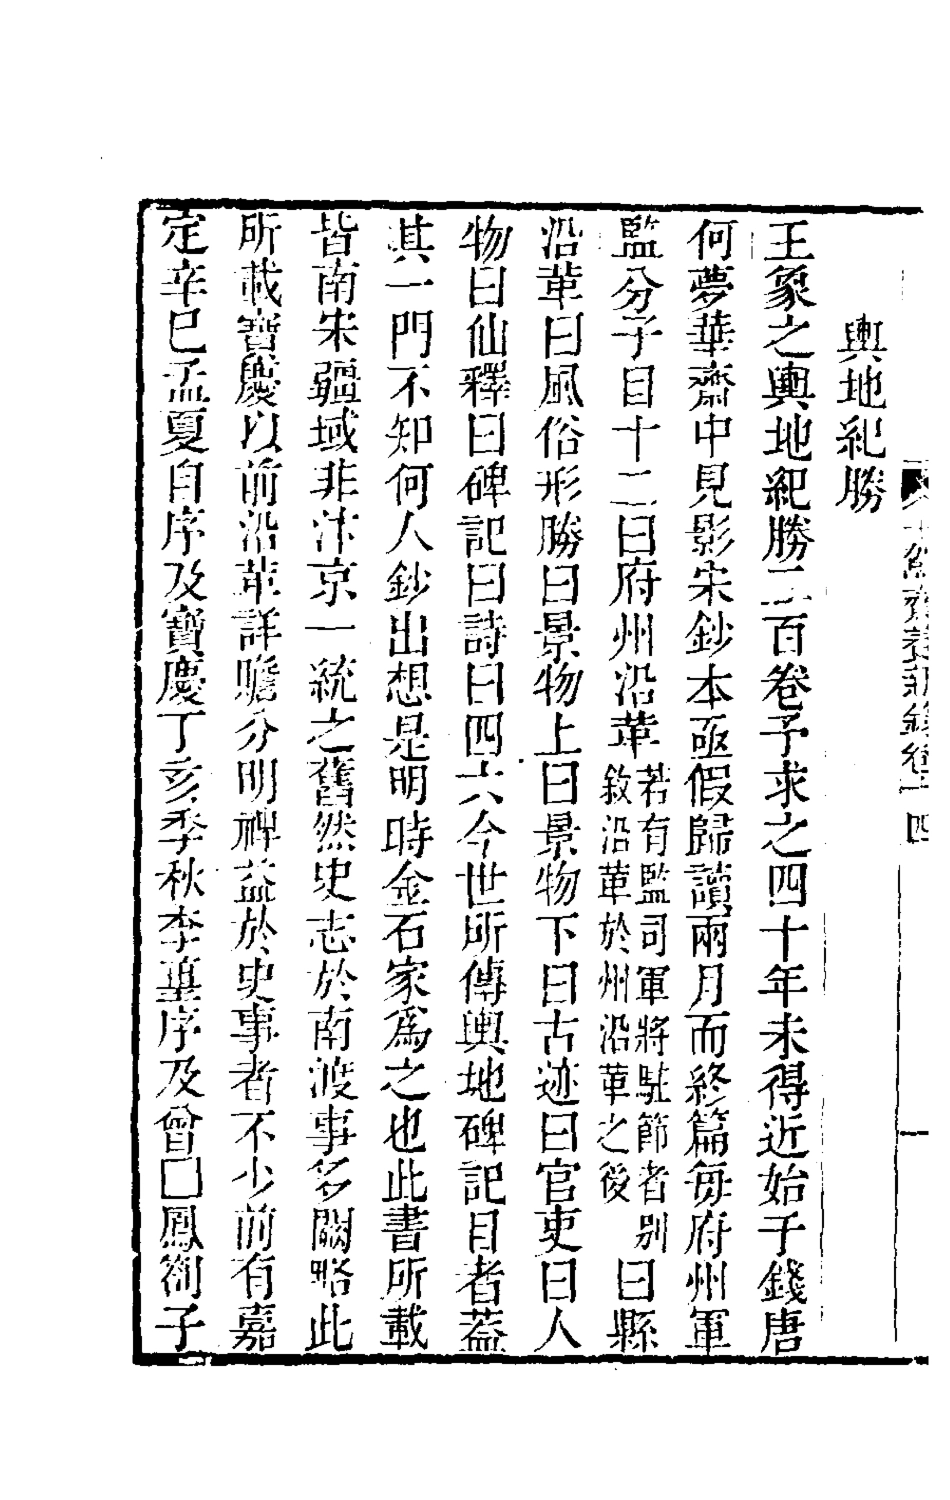 十駕齋養新錄卷十四
一
輿地紀勝
王象之輿地紀勝二百卷予求之四十年未得近始于錢唐
何夢華齋中見影宋鈔本亟假歸讀兩月而終篇每府州軍
監分子目十二曰府州沿革若有監司軍將駐節者別敘沿革於州沿革之後曰縣
沿革曰風俗形勝曰景物上曰景物下曰古迹曰官吏曰人
物曰仙釋曰碑記曰詩曰四六今世所傳輿地碑記目者蓋
其一門不知何人鈔出想是明時金石家爲之也此書所載
皆南宋疆域非汴京一統之舊然史志於南渡事多闕略此
所載寶慶以前沿革詳贍分明裨益於史事者不少前有嘉
定辛巳孟夏自序及寶慶丁亥季秋李𡌴序及曾□鳳劄子